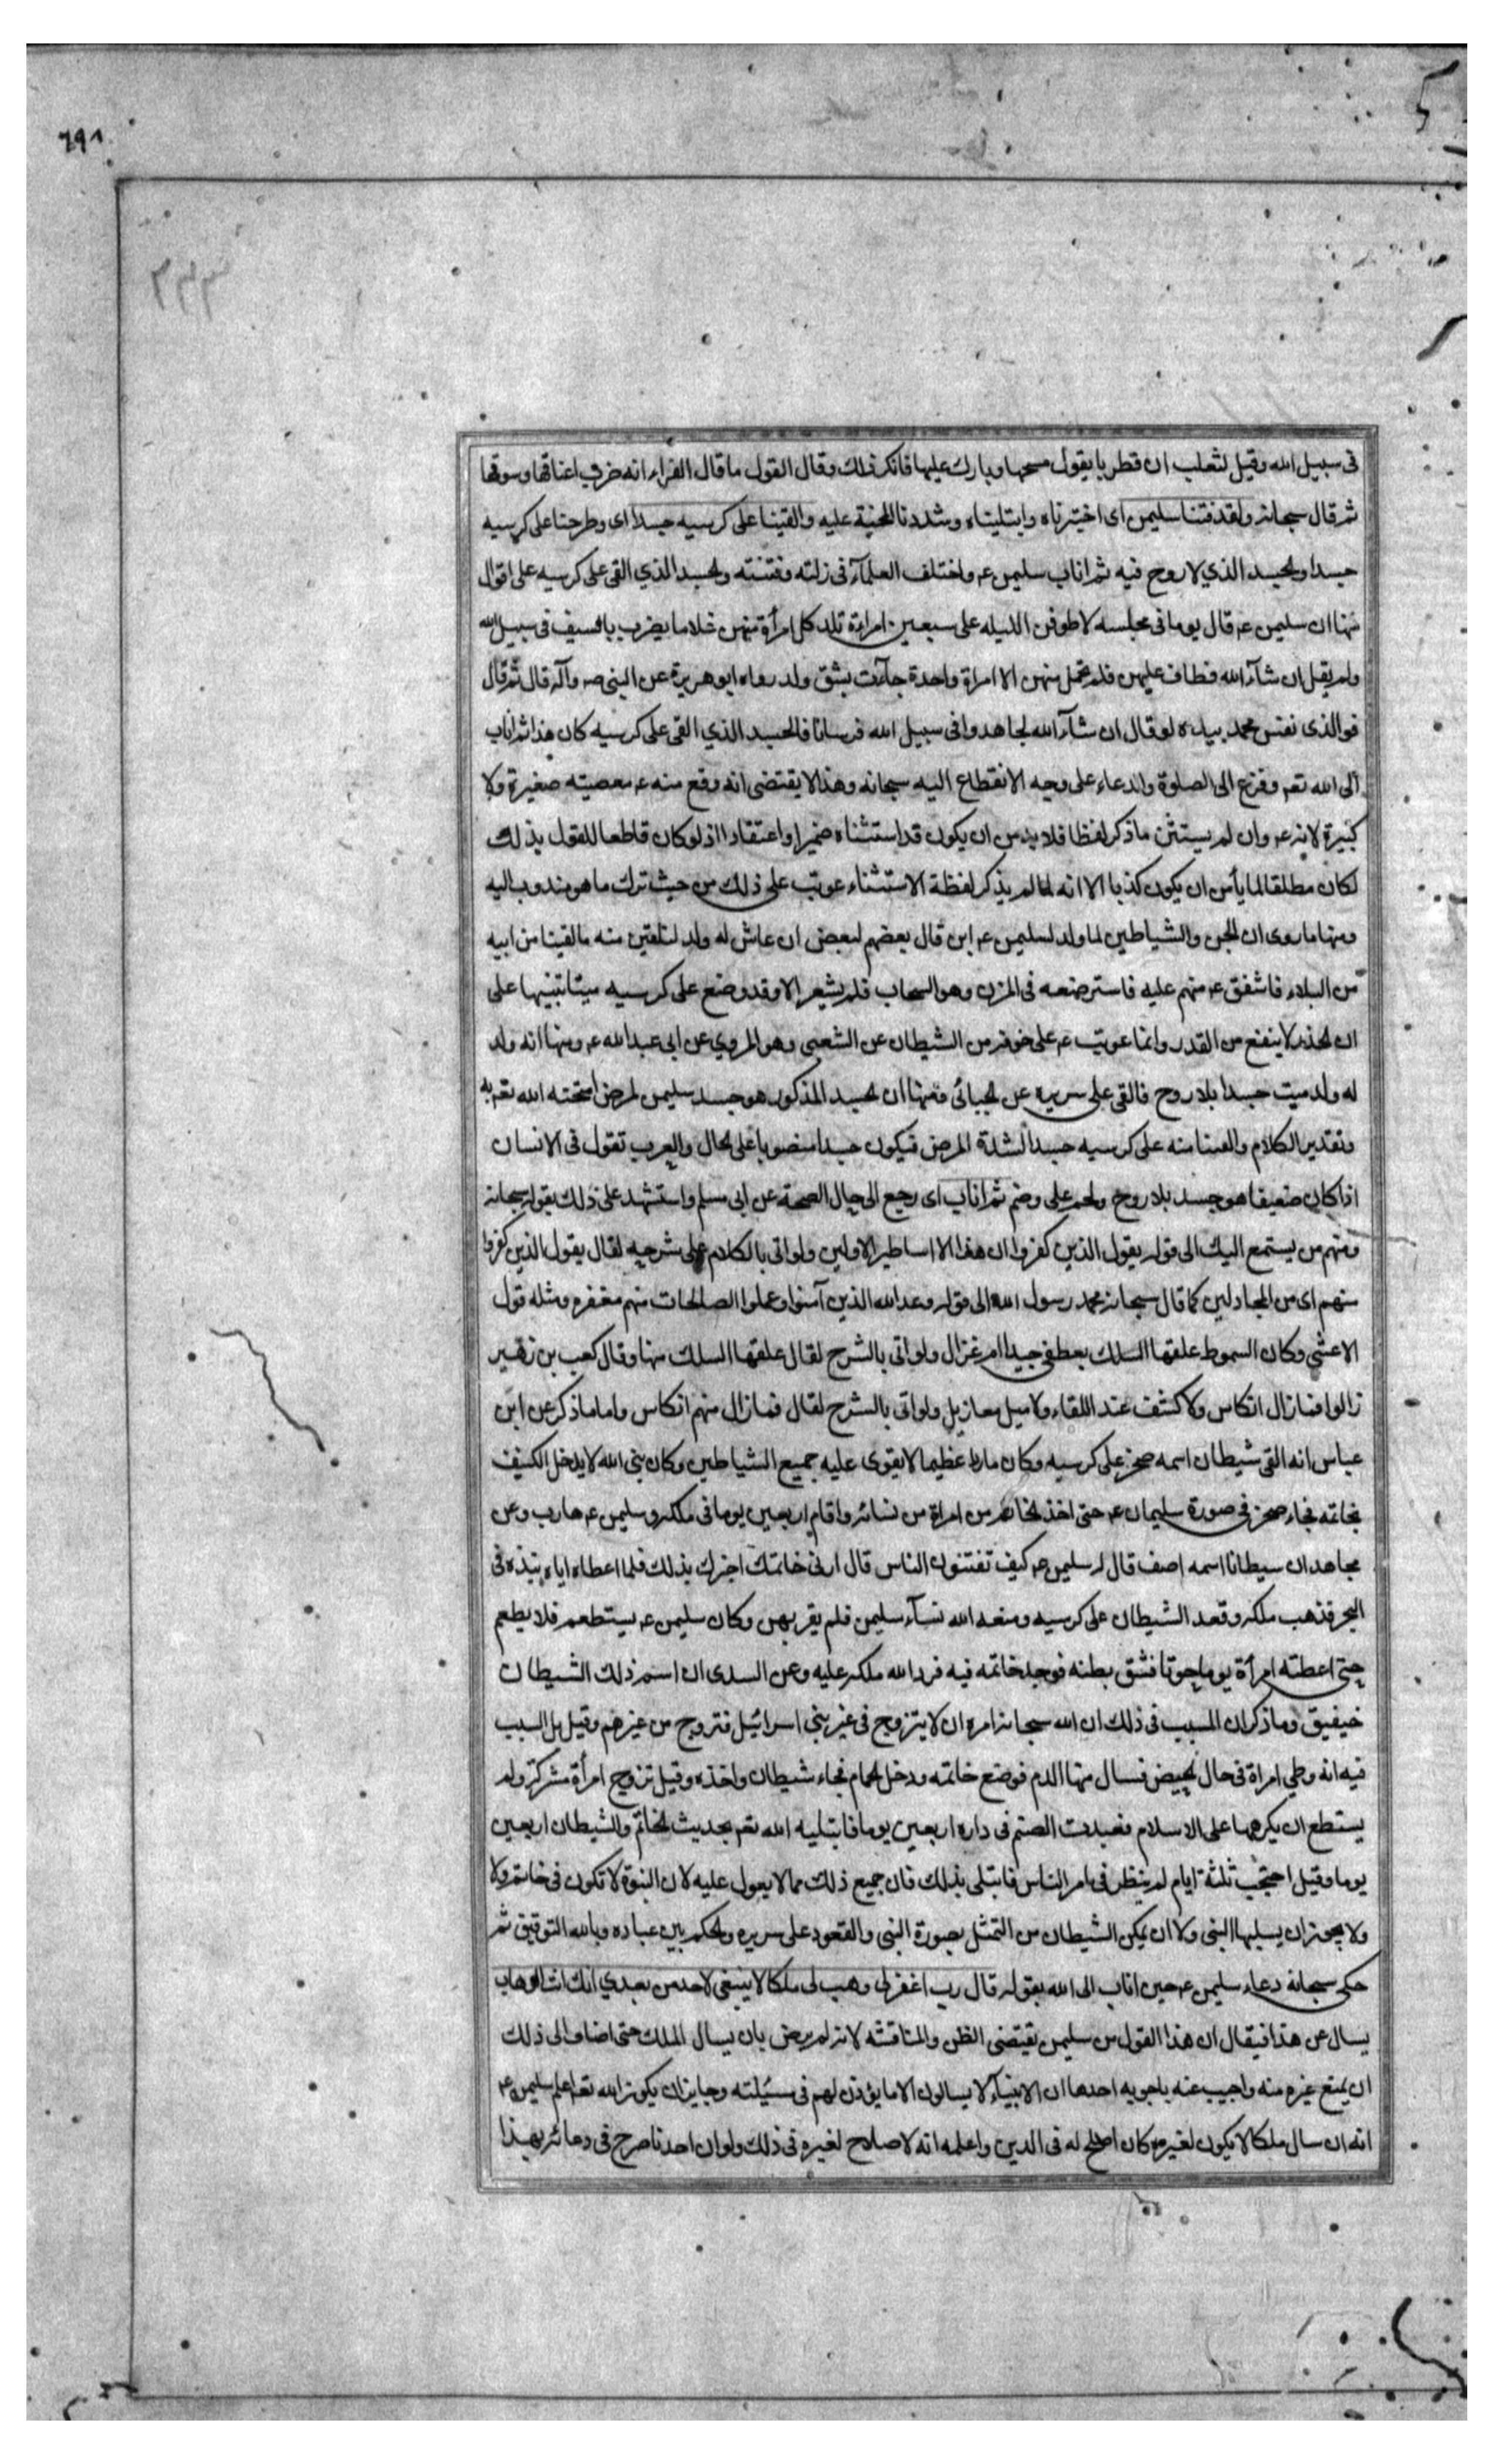 ٦٩٨
في سبيل الله وقيل لثعلب ان قطربا يقول مسحها وبارك عليها فانكر ذلك وقال القول ما قال الفراء انه ضرب اعناقها وسوقها
ثم قال سبحانه ولقد فتنا سليمن اى اختبرناه وابتليناه وشددنا المحنة عليه والقينا على كرسيه جسدا اى وطرحنا على كرسيه
جسدا والجسد الذي لا روح فيه ثم اناب سليمن عم واختلف العلمآء فى زلته وفتنته والجسد الذي القى على كرسيه على اقوال
منها ان سليمن عم قال يوما فى مجلسه لاطوفن الليله على سبعين امراءة تلد كل امرأة منهن غلاما يضرب بالسيف فى سبيل الله
ولم يقل ان شآء الله فطاف عليهن فلم تحمل منهن الا امراة واحدة جآءت بشق ولد رواه ابو هريرة عن النبى صه وآله قال ثم قال
فوالذى نفس محمد بيده لو قال ان شآء الله لجاهدوا فى سبيل الله فرسانا فالجسد الذي القى على كرسيه كان هذا ثم اناب
الى الله تعم وفزع الى الصلوة والدعاء على وجه الانقطاع اليه سبحانه وهذا لا يقتضى انه وقع منه عم معصيته صغيرة ولا
كبيرة لانه عم وان لم يستثن ما ذكر لفظا فلا بد من ان يكون قد استثناه ضميرا واعتقادا اذ لو كان قاطعا للقول بذلك
لكان مطلقا لما يأمن ان يكون كذبا الا انه لما لم يذكر لفظة الاستثناء عوتب على ذلك من حيث ترك ما هو مندوب اليه
ومنها ما روى ان الجن والشياطين لما ولد لسليمن عم ابن قال بعضهم لبعض ان عاش له ولد لنلقين منه ما لقينا من ابيه
من البلاء فاشفق عم منهم عليه فاسترضعه فى المزن وهو السحاب فلم يشعر الا وقد وضع على كرسيه ميتا تنبيها على
ان الحذر لا ينفع من القدر وانما عوتب عم على خوفه من الشيطان عن الشعبى وهو المروي عن ابى عبدالله عم ومنها انه ولد
له ولد ميت جسدا بلا روح فالقى على سريره عن الجبائى ومنها ان الجسد المذكور هو جسد سليمن لمرض امتحنه الله تعم به
وتقدير الكلام والقينا منه على كرسيه جسدا لشدة المرض فيكون جسدا منصوبا على الحال والعرب تقول فى الانسان
اذا كان ضعيفا هو جسد بلا روح ولحم على وضم ثم اناب اى رجع الى حال الصحة عن ابى مسلم واستشهد على ذلك بقوله سبحانه
ومنهم من يستمع اليك الى قوله يقول الذين كفروا ان هذا الا اساطير الاولين ولو اتى بالكلام على شرحه لقال يقول الذين كفروا
منهم اى من المجادلين كما قال سبحانه محمد رسول الله الى قوله وعد الله الذين آمنوا وعملوا الصالحات منهم مغفره ومثله قول
الاعشى وكان السموط علقها السلك بعطفى جيداء ام غزال ولو اتى بالشرح لقال علقها السلك منها وقال كعب بن زهير
زالوا فما زال انكاس ولا كشف عند اللقاء ولا ميل معازيل ولو اتى بالشرح لقال فما زال منهم انكاس واما ما ذكر عن ابن
عباس انه القى شيطان اسمه صخر على كرسيه وكان ماردا عظيما لا يقوى عليه جميع الشياطين وكان نبى الله لا يدخل الكنيف
بخاتمه فجاء صخر فى صورة سليمان عم حتى اخذ الخاتم من امراة من نسائه واقام اربعين يوما فى ملكه وسليمن عم هارب وعن
مجاهد ان سيطانا اسمه اصف قال له سليمن عم كيف تفتنون الناس قال ارنى خاتمك اخبرك بذلك فلما اعطاه اياه نبذه فى
البحر فذهب ملكه وقعد الشيطان على كرسيه ومنعه الله نسآء سليمن فلم يقربهن وكان سليمن عم يستطعم فلا يطعم
حتى اعطته امرأة يوما حوتا فشق بطنه فوجد خاتمه فيه فرد الله ملكه عليه وعن السدى ان اسم ذلك الشيطان
خيفيق وما ذكر ان السبب فى ذلك ان الله سبحانه امره ان لا يتزوج فى غير بنى اسرائيل فتزوج من غيرهم وقيل بل السبب
فيه انه وطى امراة فى حال الحيض فسال منها الدم فوضع خاتمه ودخل الحمام فجاء شيطان واخذه وقيل تزوج امرأة مشركة ولم
يستطع ان يكرهها على الاسلام فعبدت الصنم فى داره اربعين يوما فابتليه الله تعم بحديث الخاتم والشيطان اربعين
يوما وقيل احتجب ثلثة ايام لم ينظر فى امر الناس فابتلى بذلك فان جميع ذلك مما لا يعول عليه لان النبوة لا تكون فى خاتم ولا
ولا يجوز ان يسلبها النبى ولا ان يمكن الشيطان من التمثل بصورة النبى والقعود على سريره والحكم بين عباده وبالله التوفيق ثم
حكى سبحانه دعاء سليمن عم حين اناب الى الله بقوله قال رب اغفر لى وهب لى ملكا لا ينبغى لاحد من بعدي انك انت الوهاب
يسال عن هذا فيقال ان هذا القول من سليمن يقتضى الظن والمناقشه لانه لم يرض بان يسال الملك حتى اضاف الى ذلك
ان يمنع غيره منه واجيب عنه باجوبه احدها ان الانبيآء لا يسالون الا ما يؤذن لهم فى مسئلته وجايز ان يكون الله تعم اعلم سليمن عم
انه ان سال ملكا لا يكون لغيره كان اصلح له فى الدين واعلمه انه لا صلاح لغيره فى ذلك ولو ان احدنا صرح فى دعائه بهذا